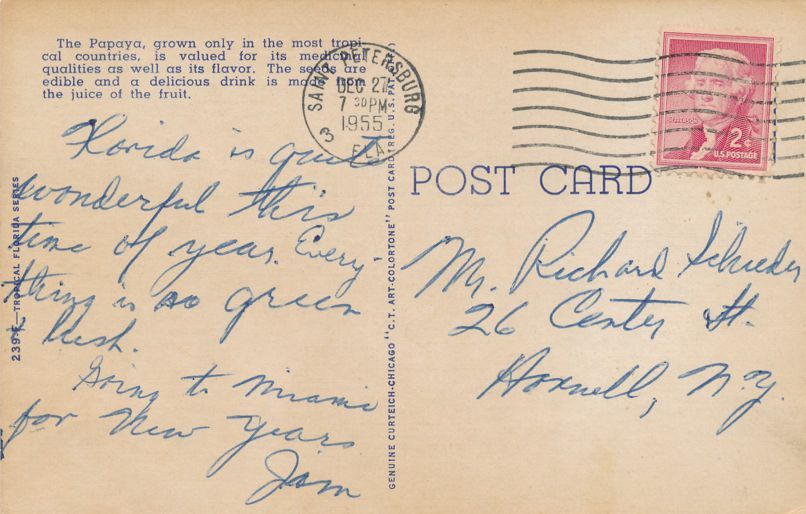 The Papaya, grown only in the most tropi-
cal countries, is valued for its medicinal
qualities as well as its flavor. The seeds are
edible and a delicious drink is made from
the juice of the fruit.
SAINT PETERSBURG
DEC 27
7 30 PM
1955
FLA
3
JEFFERSON
2¢
U.S. POSTAGE
POST CARD
Florida is quite
wonderful this
time of year. Every
thing is so green
lush.
Going to Miami
for New Years
Jim
Mr. Richard
26 Center St.
Hornell, N.Y.
239-E—TROPICAL FLORIDA SERIES
GENUINE CURTEICH-CHICAGO "C.T. ART-COLORTONE" POST CARD (REG. U.S. PAT.